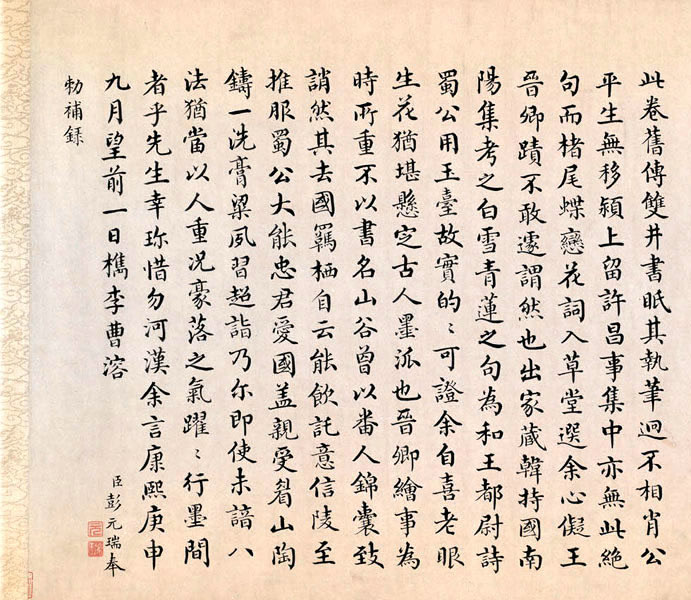 此卷舊傳雙井書眂其執筆迥不相肖公
平生無移潁上留許昌事集中亦無此絕
句而楮尾蝶戀花詞入草堂選余心儗王
晉卿蹟不敢遽謂然也出家蔵韓持國南
陽集考之白雪青蓮之句為和王都尉詩
蜀公用玉臺故實的〻可證余自喜老眼
生花猶堪懸定古人墨派也晉卿繪事為
時所重不以書名山谷曾以番人錦囊致
誚然其去國羈栖自云能飲託意信陵至
推服蜀公大能忠君愛國盖親受眉山陶
鑄一洗膏粱夙習超詣乃尓即使未諳八
法猶當以人重況豪落之氣躍〻行墨間
者乎先生幸珎惜勿河漢余言康熙庚申
九月望前一日檇李曹溶
臣彭元瑞奉
勑補録